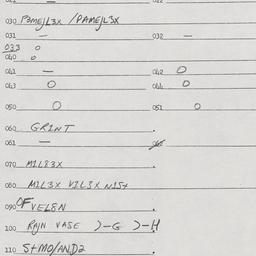 030 P3MEJL3X / PAMEJLSX
031 — 032 —
033 o
040 o
041 — 042 O
043 O 044 O
050 O 051 O
060 GRINT
061 —
070 MIL83X
080 MIL3X VIL3X NIST
090 OF VEL8N
100 RAJN VASE )-G )-H
110 StMO/AND2